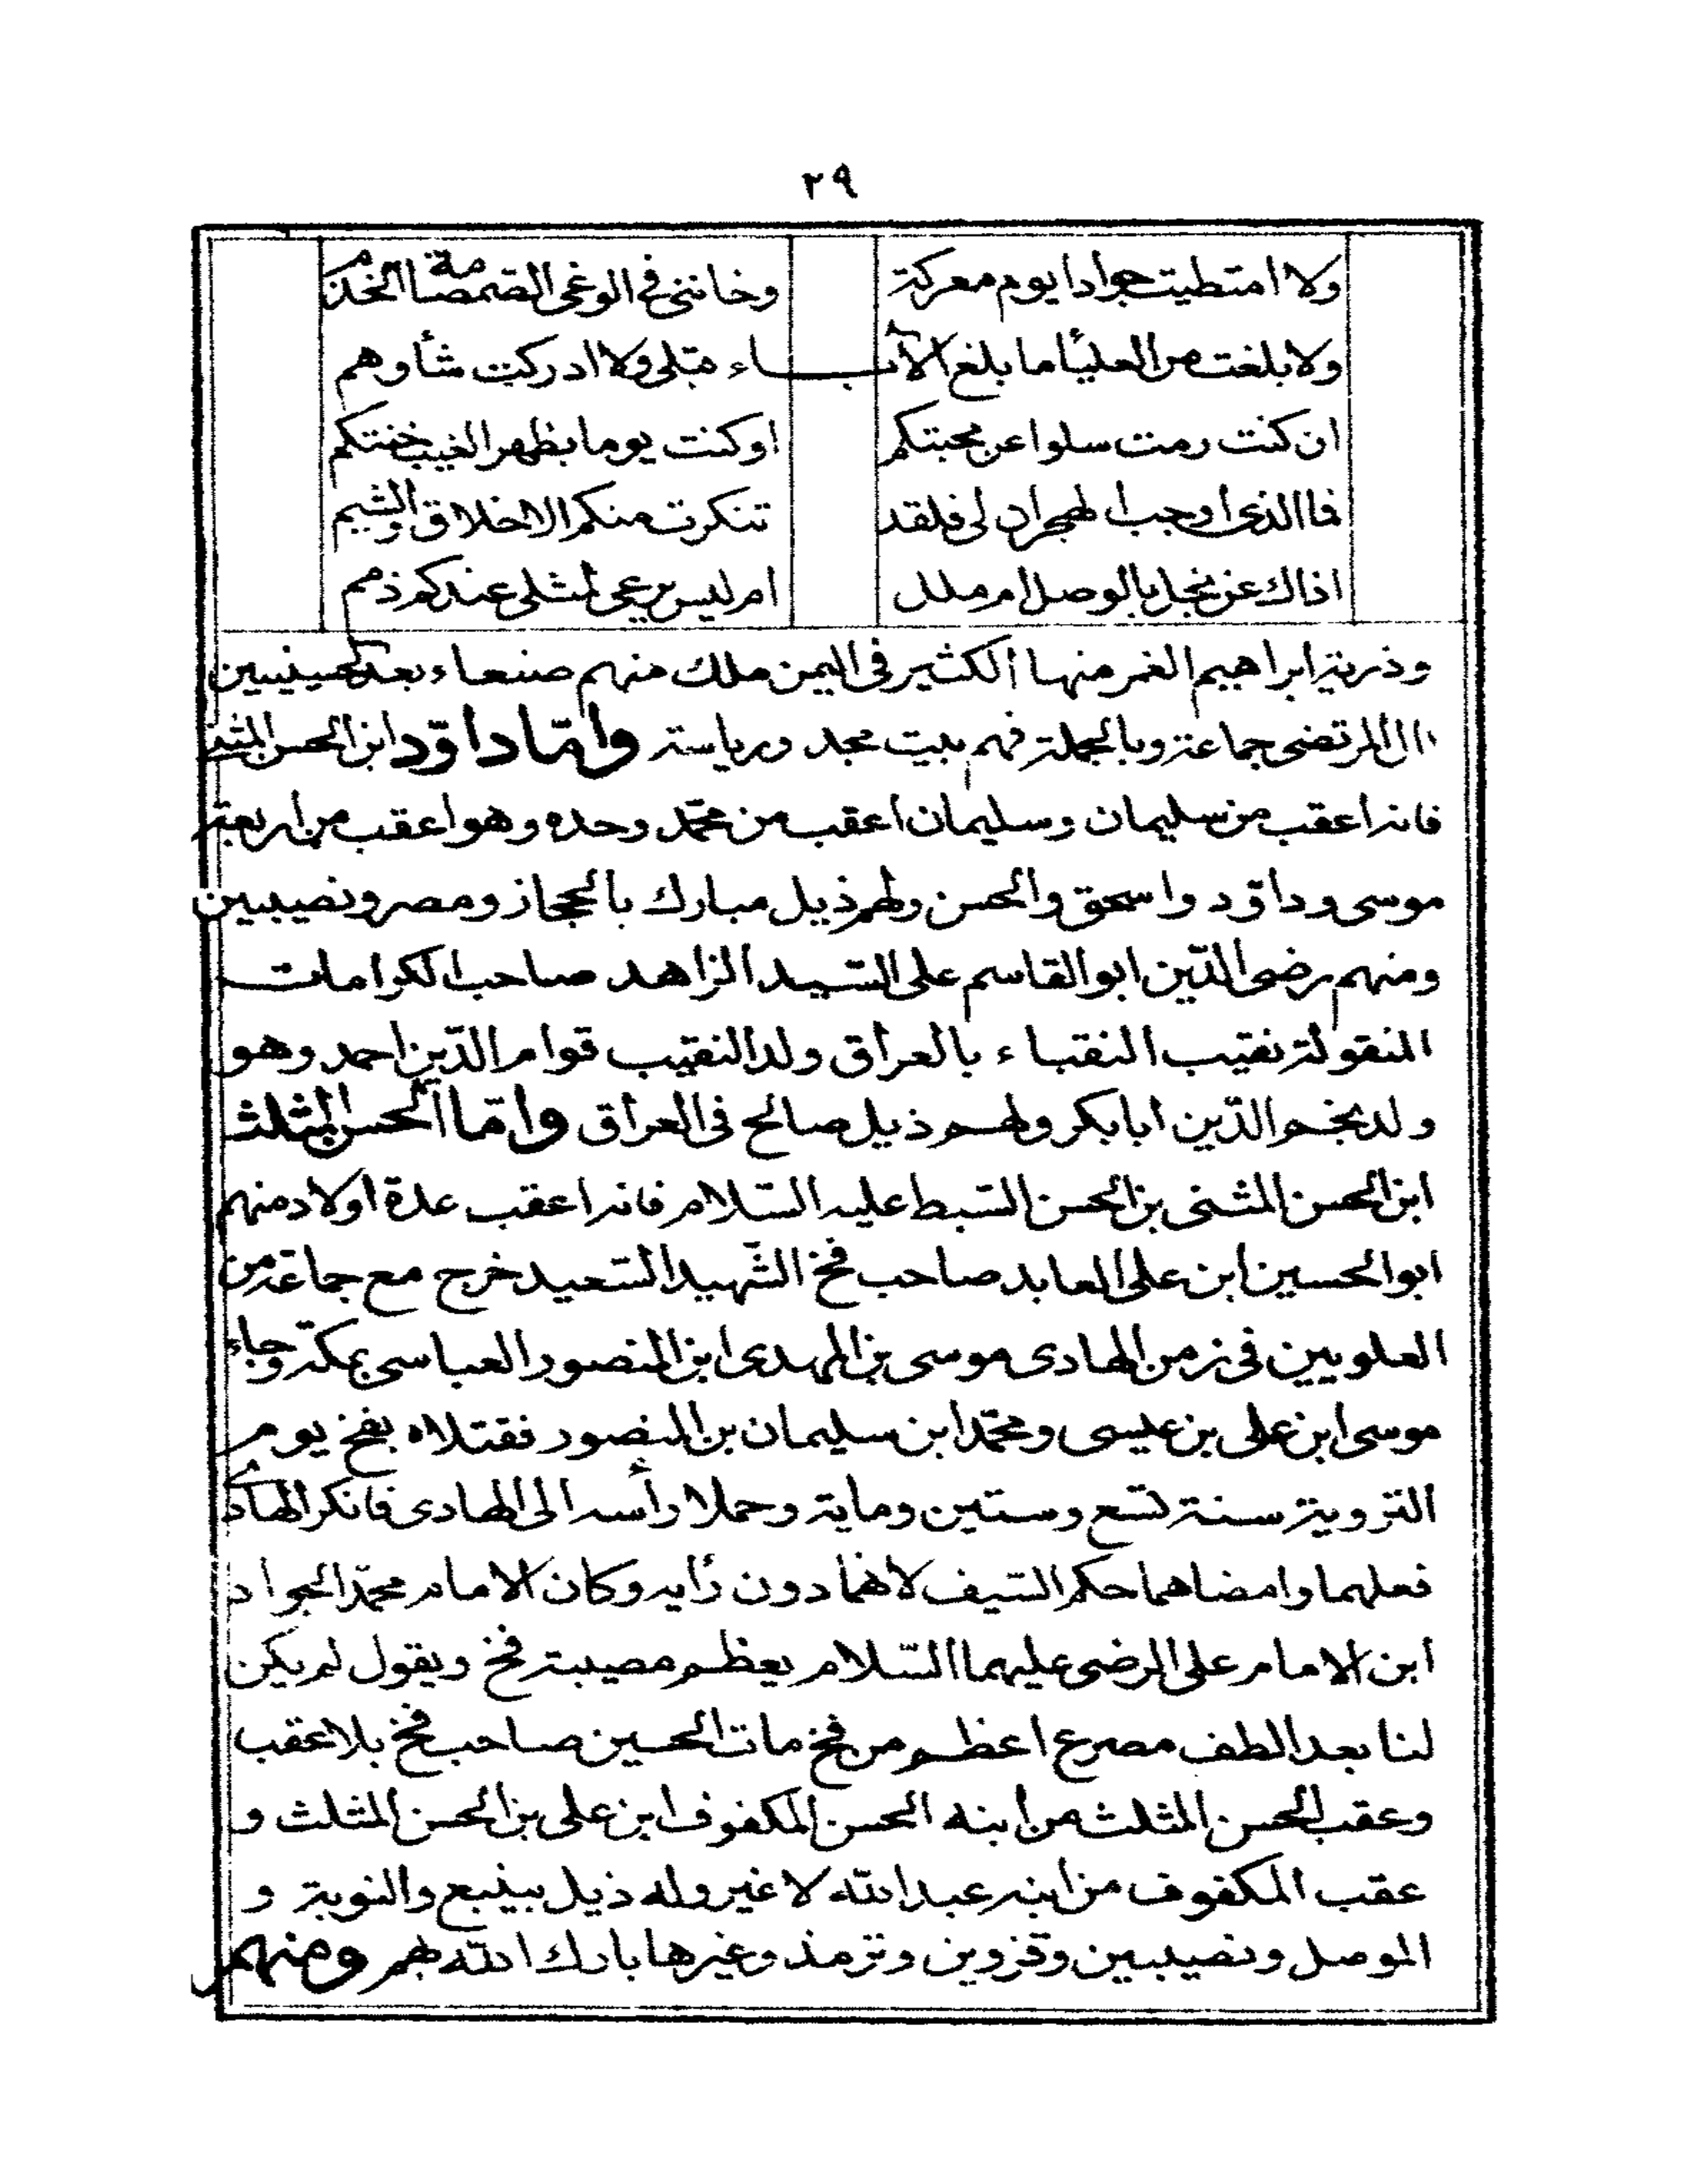 ٢٩
ولا امتطيت جوادا يوم معركة وخانني في الوغى الصمصامة الخذم
ولا بلغت من العليا ما بلغ الآبـــاء قبلي ولا ادركت شأوهم
ان كنت رمت سلوا عن محبتكم اوكنت يوما بظهر الغيب خنتكم
فما الذى اوجب الهجران لى فلقد تنكرت منكم الاخلاق والشيم
اذاك عن بخل بالوصل ام ملل ام ليس يرعى لمثلى عندكم ذمم
وذرية ابراهيم الغمر منها الكثير فى اليمن ملك منهم صنعاء بعد الحسينيين
ال المرتضى جماعة وبالجملة فهم بيت مجد ورياسة وامّا داوٗد ابن الحسن المثنى
فانه اعقب من سليمان وسليمان اعقب من محمّد وحده وهو اعقب من اربعة
موسى وداوٗد واسحق والحسن ولهم ذيل مبارك بالحجاز ومصر ونصيبين
ومنهم رضى الدّين ابو القاسم على السّيد الزاهد صاحب الكرامات
المنقولة نقيب النقباء بالعراق ولد النقيب قوام الدّين احمد وهو
ولد نجم الدّين ابا بكر ولهم ذيل صالح فى العراق وامّا الحسن المثلث
ابن الحسن المثنى بن الحسن السّبط عليه السّلام فانه اعقب عدة اولاد منهم
ابو الحسين ابن على العابد صاحب فخ الشّهيد السّعيد خرج مع جماعة من
العلويين فى زمن الهادى موسى بن المهدى ابن المنصور العباسى بمكة وجاء
موسى ابن على بن عيسى ومحمّد ابن سليمان بن المنصور فقتلاه بفخ يوم
التروية سنة تسع وستين وماية وحملا رأسه الى الهادى فانكر الهادى
فعلهما وامضاهما حكم السّيف لانهما دون رأيه وكان الامام محمّد الجواد
ابن الامام على الرضى عليهما السّلام يعظم مصيبة فخ ويقول لم يكن
لنا بعد الطف مصرع اعظم من فخ مات الحسين صاحب فخ بلا عقب
وعقب الحسن المثلث من ابنه الحسن المكفوف ابن على بن الحسن المثلث و
عقب المكفوف من ابنه عبد الله لا غير وله ذيل بينبع والنوبة و
الموصل ونصيبين وقزوين وترمذ وغيرها بارك الله بهم ومنهم